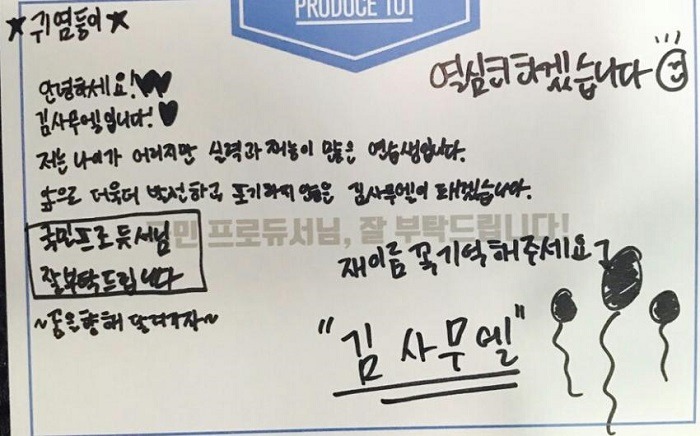 PRODUCE 101
★귀염둥이★
열심히하겠습니다
안녕하세요!
김사무엘입니다!
저는 나이가 어리지만 실력과 재능이 많은 연습생입니다.
앞으로 더욱더 발전하고 포기하지 않은 김사무엘이 돼겠습니다.
국민 프로듀서님, 잘 부탁드립니다!
국민프로듀서님
잘부탁드립니다
재이름 꼭기억해주세요
~꿈을향해 달려가자~
"김 사무엘"